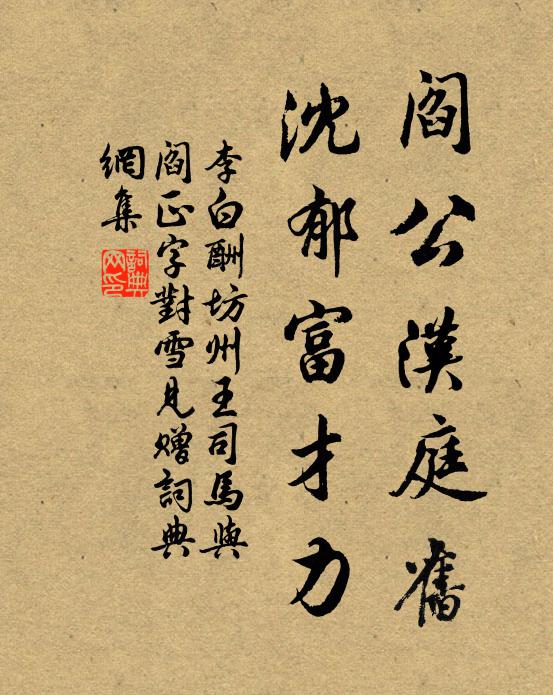 閻公漢庭舊
沈郁富才力
李白酬坊州王司馬與
閻正字對雪見贈詞典
網集
詞典網印